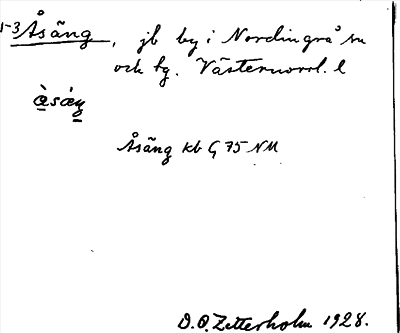 1-3 Åsäng, jb by i Nordingrå sn
och tg. Västernorrl. l
Åsäng kb G 75 NM
D.O. Zetterholm 1928.